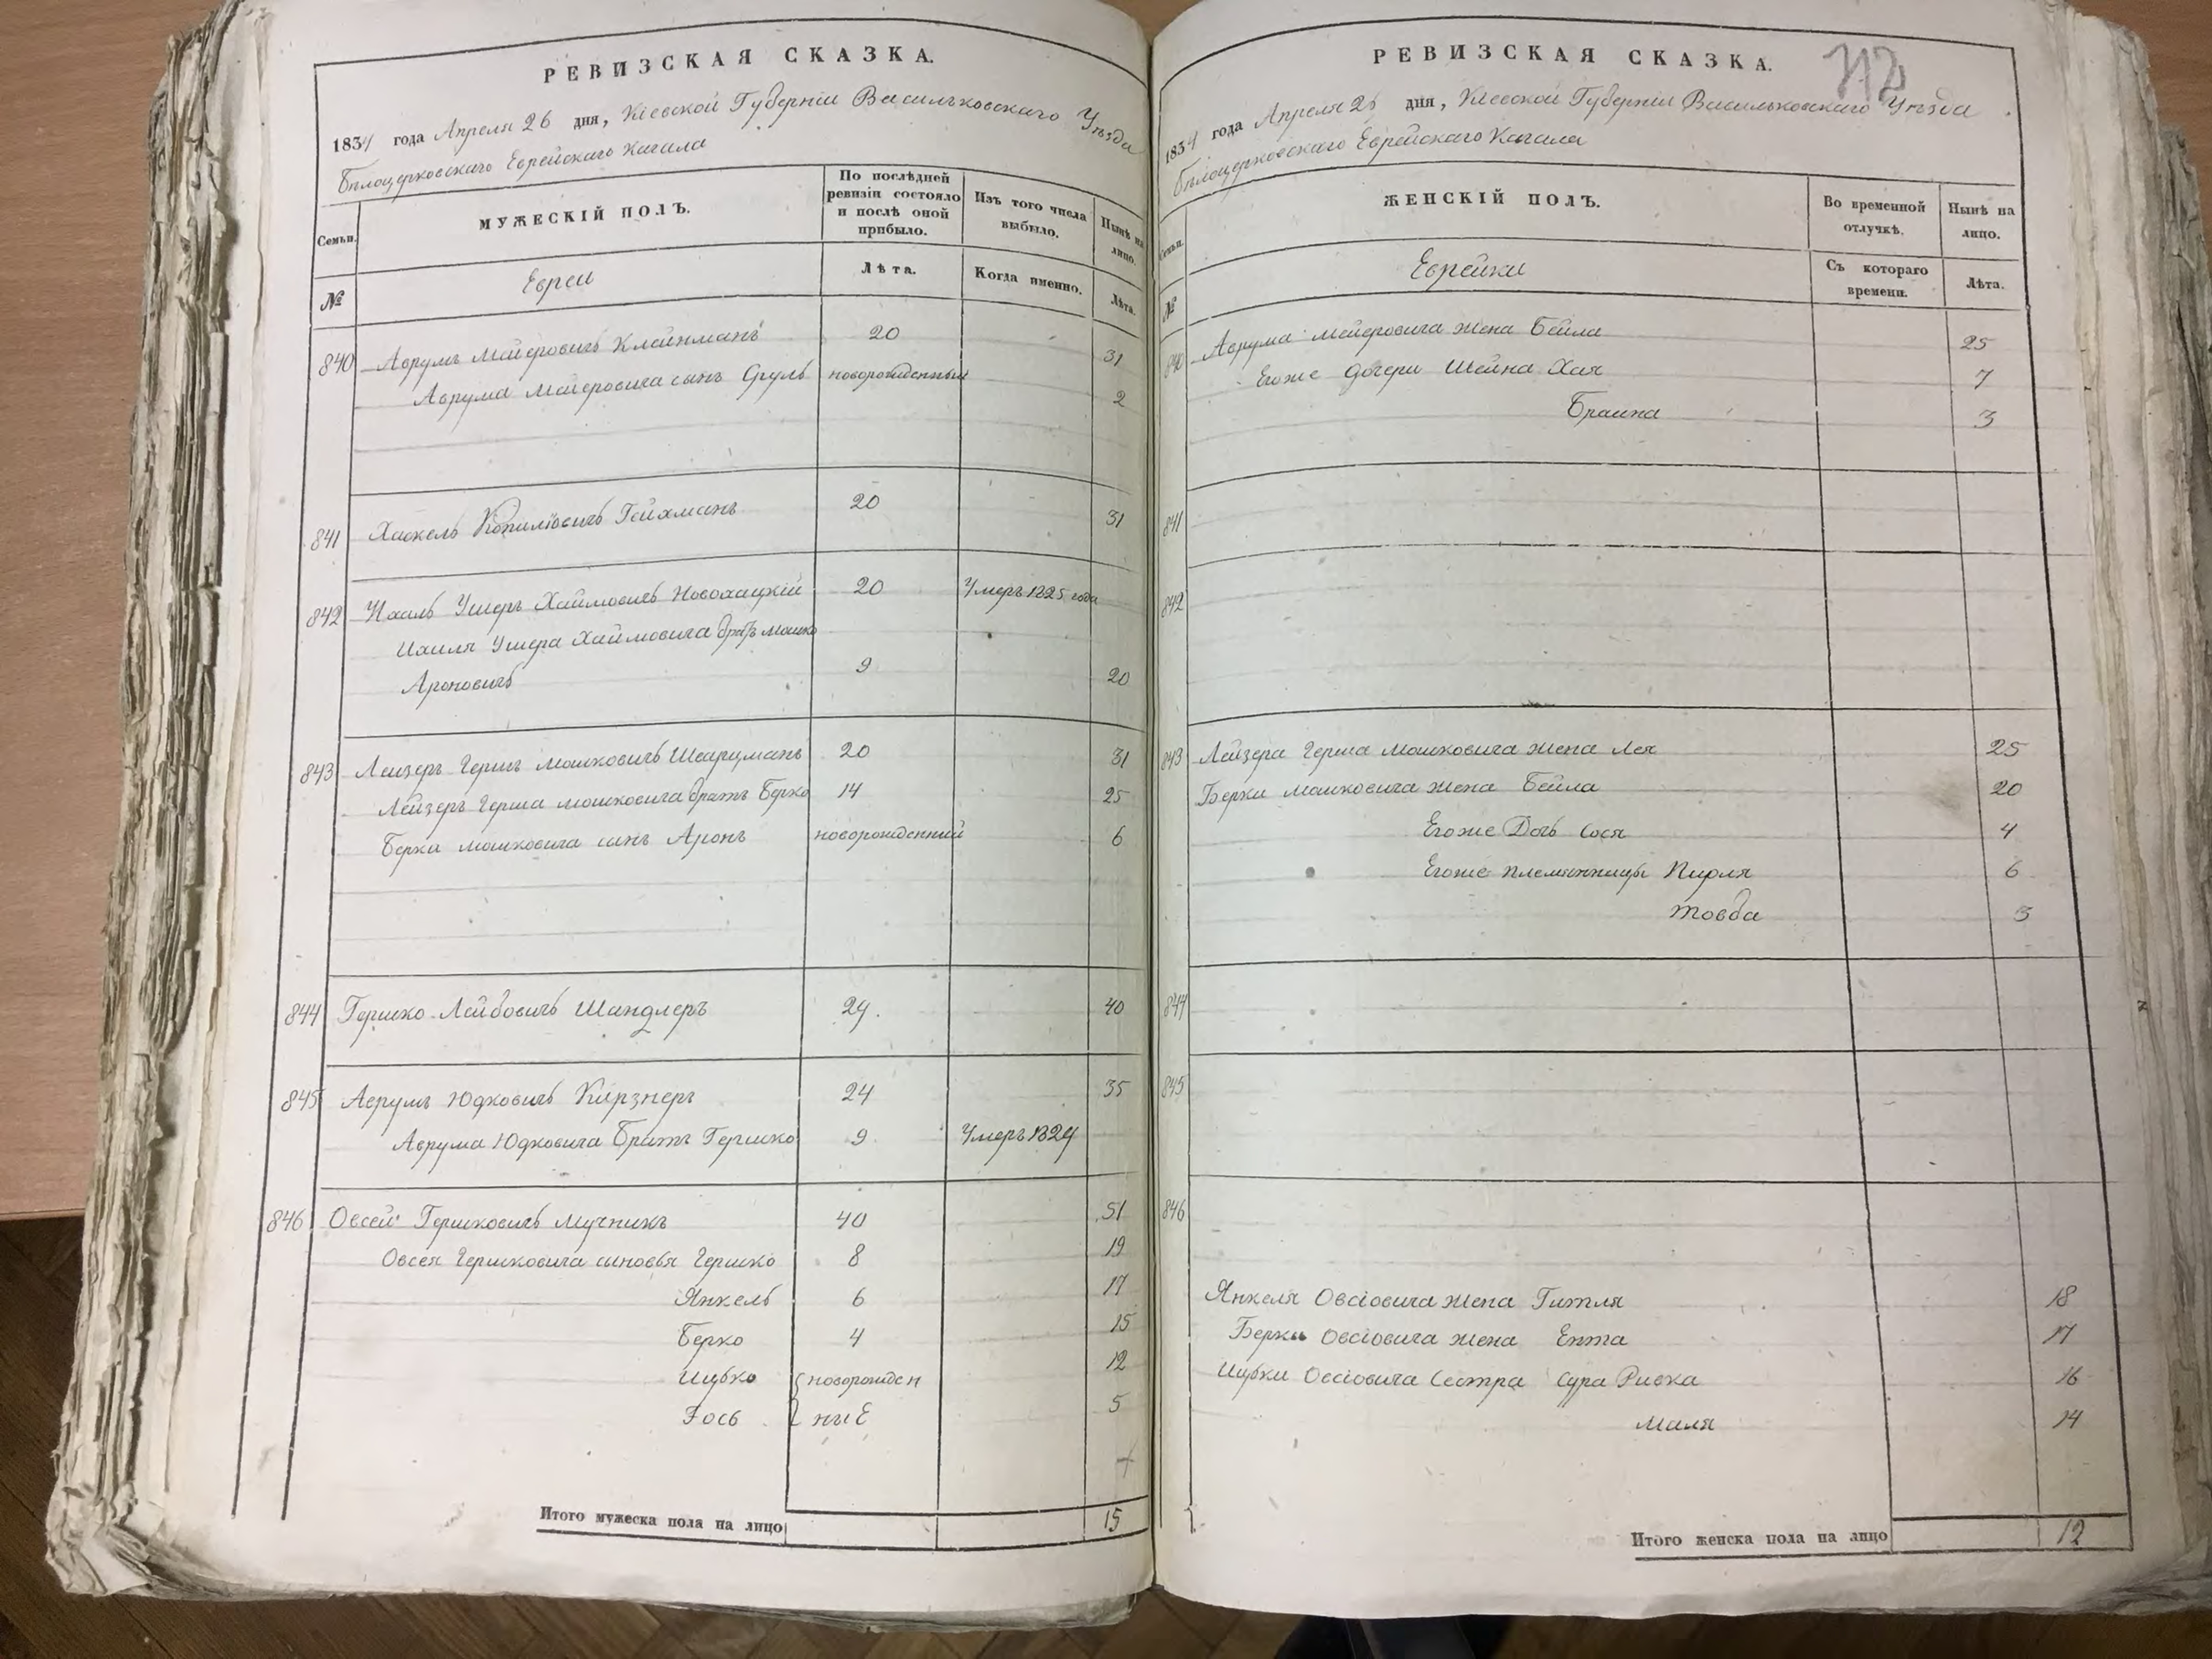 РЕВИЗСКАЯ СКАЗКА.
1834 года Апреля 26 дня, Кіевской Губерніи Васильковскаго Уѣзда
Бѣлоцерковскаго Еврейскаго Кагала
Семьи.
МУЖЕСКІЙ ПОЛЪ.
По послѣдней ревизіи состояло и послѣ оной прибыло.
Изъ того числа выбыло.
Нынѣ на лицо.
№
Евреи
Лѣта.
Когда именно.
Лѣта.
840 Аврумъ Мейеровичъ Клейнманъ 20 31
Аврума Мейеровича сынъ Сруль новорожденный 2
841 Хаскель Гойхманъ 20 31
842 Ушеръ Хаймовичъ 20 Умеръ 1825 года
Ушера Хаймовича братъ Мошко
Ароновичъ 9 20
843 Лейзеръ Гершъ Мошковичъ Шварцманъ 20 31
Лейзеръ Герша Мошковича братъ Берко 14 25
Берки Мошковича сынъ Аронъ новорожденный 6
844 Гершко Лейбовичъ Шандлеръ 29. 40
845 Аврумъ Юдковичъ Кирзнеръ 24 35
Аврума Юдковича Братъ Гершко 9 Умеръ 1829
846 Овсей Гершковичъ Мучникъ 40 51
Овсея Гершковича сыновья Гершко 8 19
Янкель 6 17
Берко 4 15
Ицько новорожден 12
Іось ные 5
Итого мужеска пола на лицо 15
РЕВИЗСКАЯ СКАЗКА.
712
1834 года Апреля 26 дня, Кіевской Губерніи Васильковскаго Уѣзда
Бѣлоцерковскаго Еврейскаго Кагала
Семьи.
ЖЕНСКІЙ ПОЛЪ.
Во временной отлучкѣ.
Нынѣ на лицо.
№
Еврейки
Съ котораго времени.
Лѣта.
840 Аврума Мейеровича жена Бейла 25
Егоже дочери Шейна Хая 7
Браина 3
841
842
843 Лейзера Герша Мошковича жена Лея 25
Берки Мошковича жена Бейла 20
Егоже Дочь Сося 4
Егоже племянницы Пирля 6
Товба 3
844
845
846
Янкеля Овсіовича жена Гитля 18
Берки Овсіовича жена Ента 17
Ицьки Овсіовича Сестра Сура Ривка 16
Маля 14
Итого женска пола на лицо 12